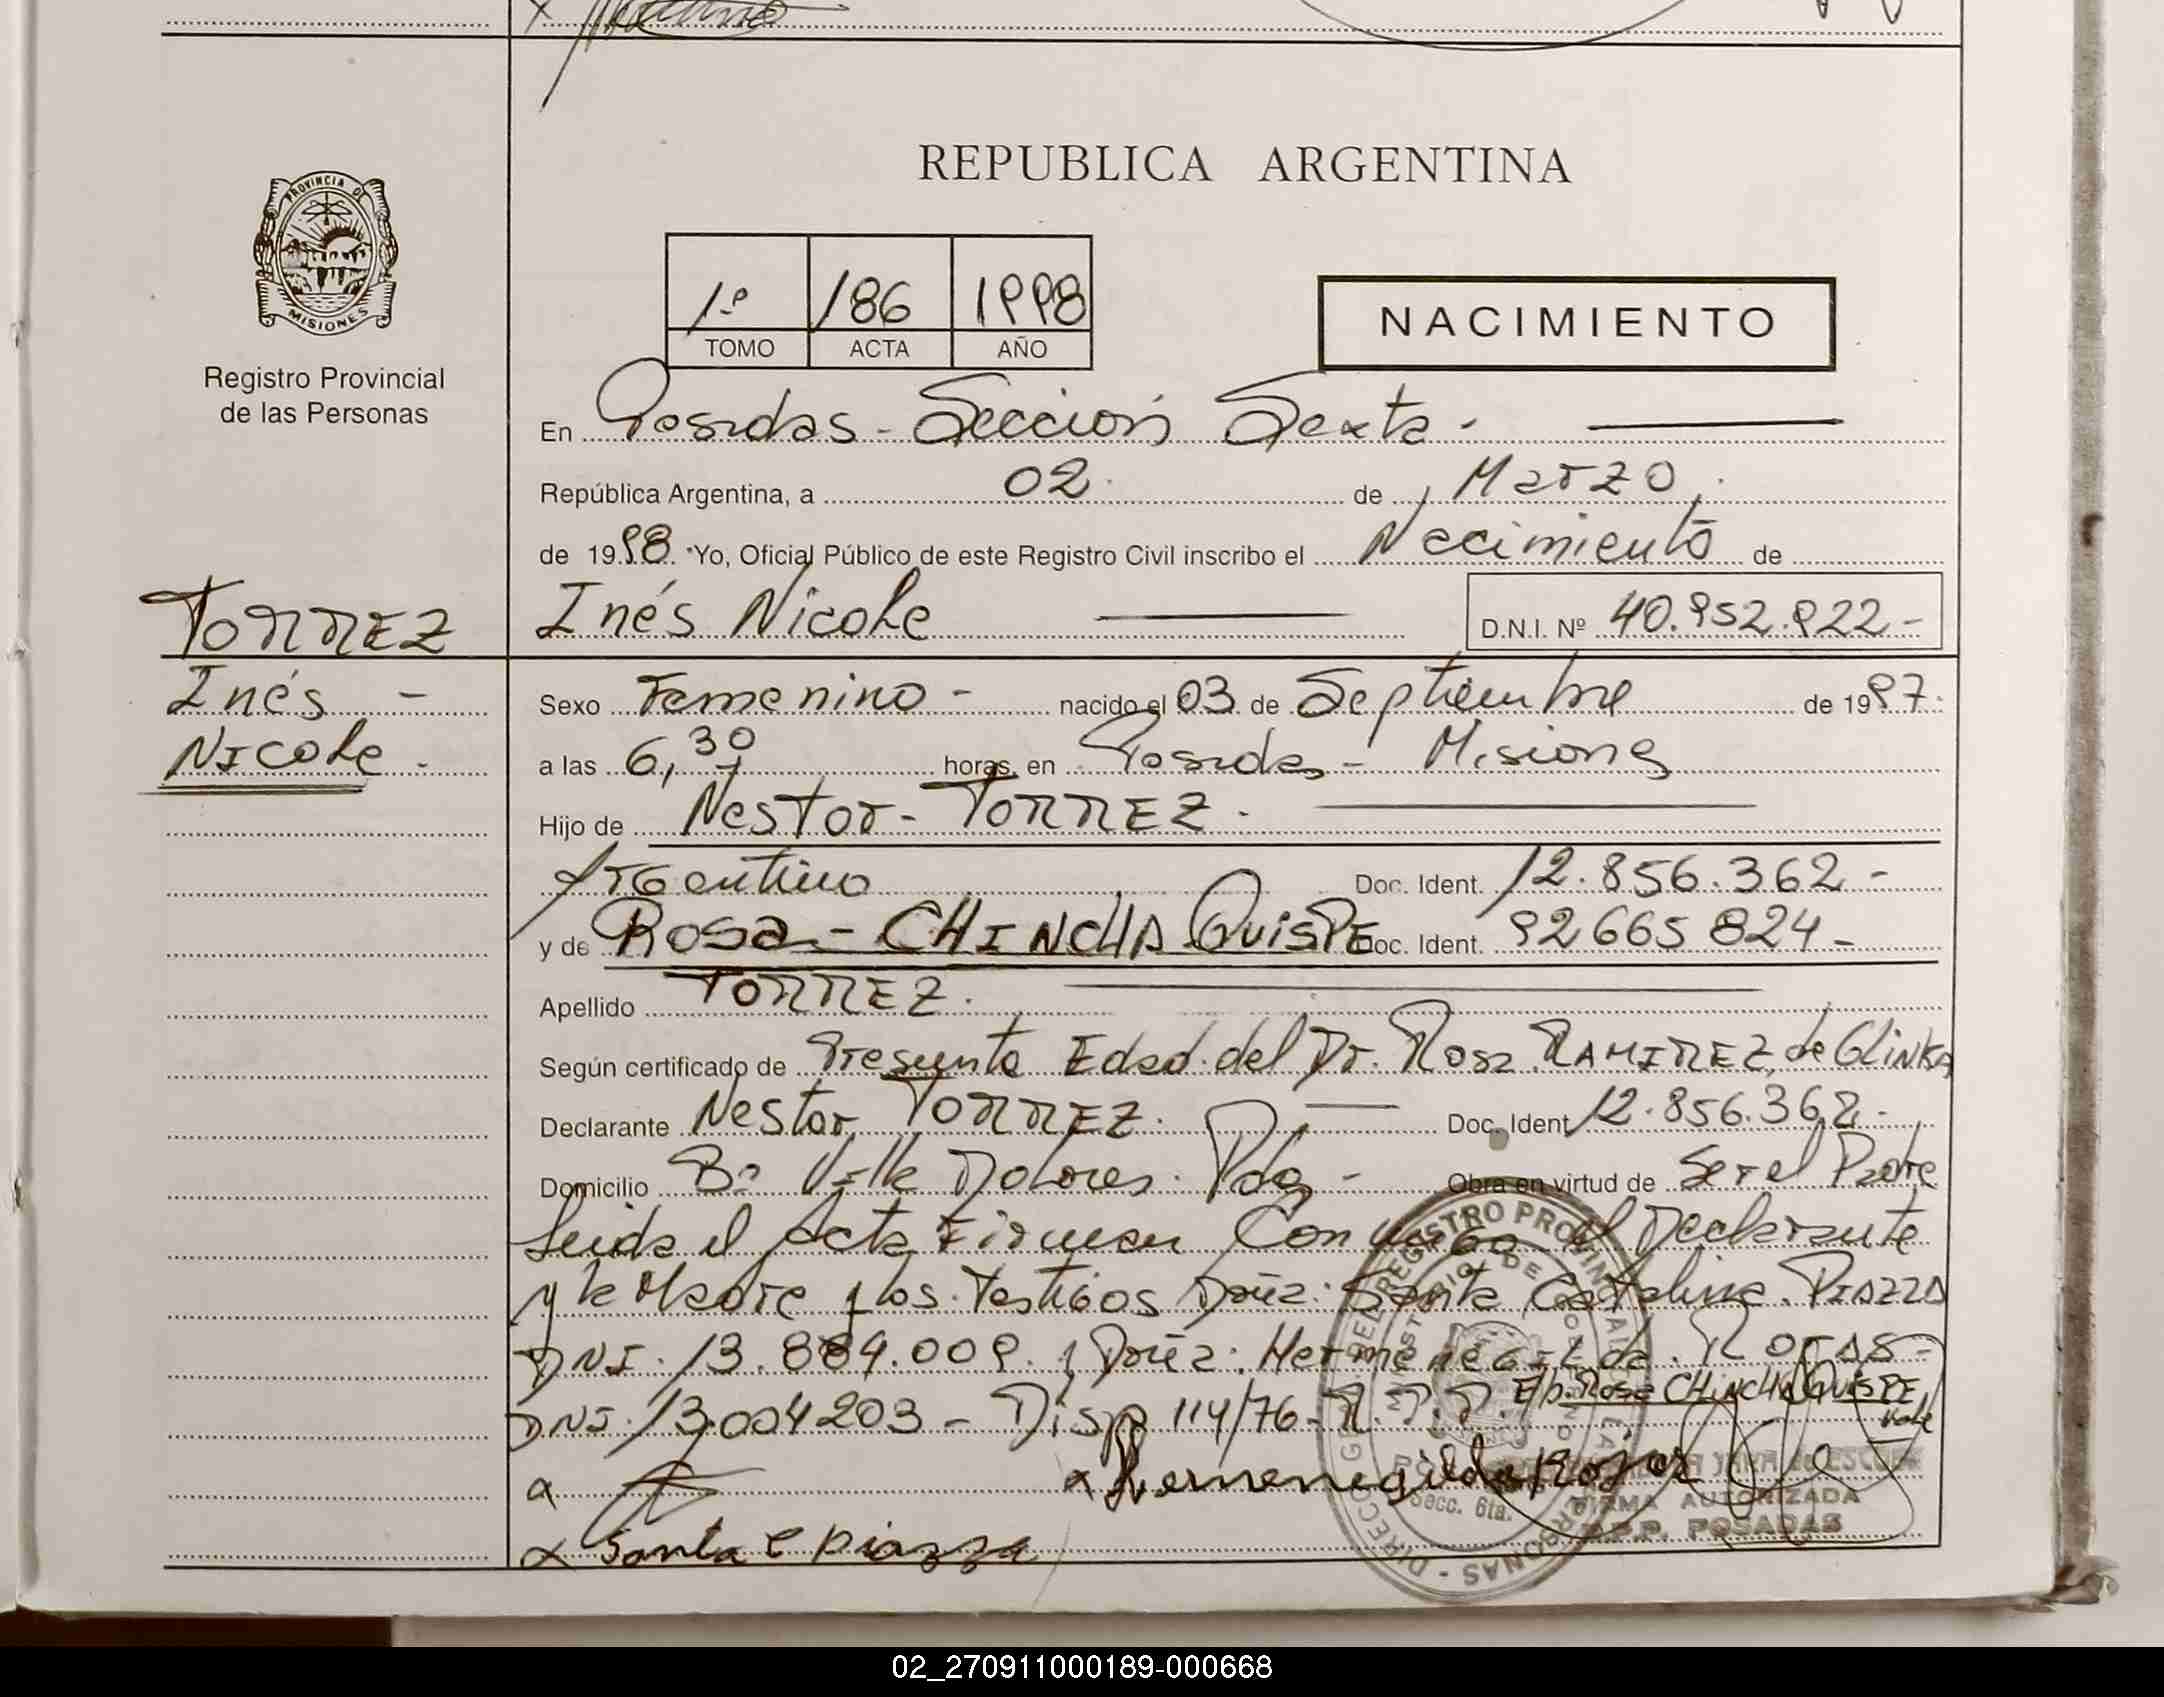 REPUBLICA ARGENTINA
PROVINCIA DE
MISIONES
Registro Provincial
de las Personas
1º 186 1998
TOMO ACTA AÑO
NACIMIENTO
En Posadas - Sección Sexta -
República Argentina, a 02 de Marzo
de 1998 Yo, Oficial Público de este Registro Civil inscribo el Nacimiento de
Inés Nicole D.N.I. Nº 40.952.922-
TORREZ
Inés -
Nicole -
Sexo Femenino - nacido el 03 de Septiembre de 1997.
a las 6,30 horas, en Posadas - Misiones
Hijo de Nestor - TORREZ.
Argentino Doc. Ident. 12.856.362-
y de Rosa - CHINCHA QUISPE Doc. Ident. 92665824-
Apellido TORREZ.
Según certificado de Presunta Edad del Dr. Rosa RAMIREZ de GLINKA
Declarante Nestor TORREZ. Doc. Ident 12.856.362-
Domicilio Bº Villa Dolores. Pdas - Obra en virtud de Ser el Padre
Leida el Acta Firman Conmigo el Declarante
y la Madre y los Testigos Doña: Santa Catalina PIAZZA
DNI. 13.884.009. y Doña: Hermenegilda ROJAS -
DNI. 13.004203 - Disp 114/76 - R.P.P. E/p. Rosa CHINCHA QUISPE,
Vale
x Hermenegilda Rojas
FIRMA AUTORIZADA
R.P.P. POSADAS
Secc. 6ta.
x Santa C Piazza
02_270911000189-000668